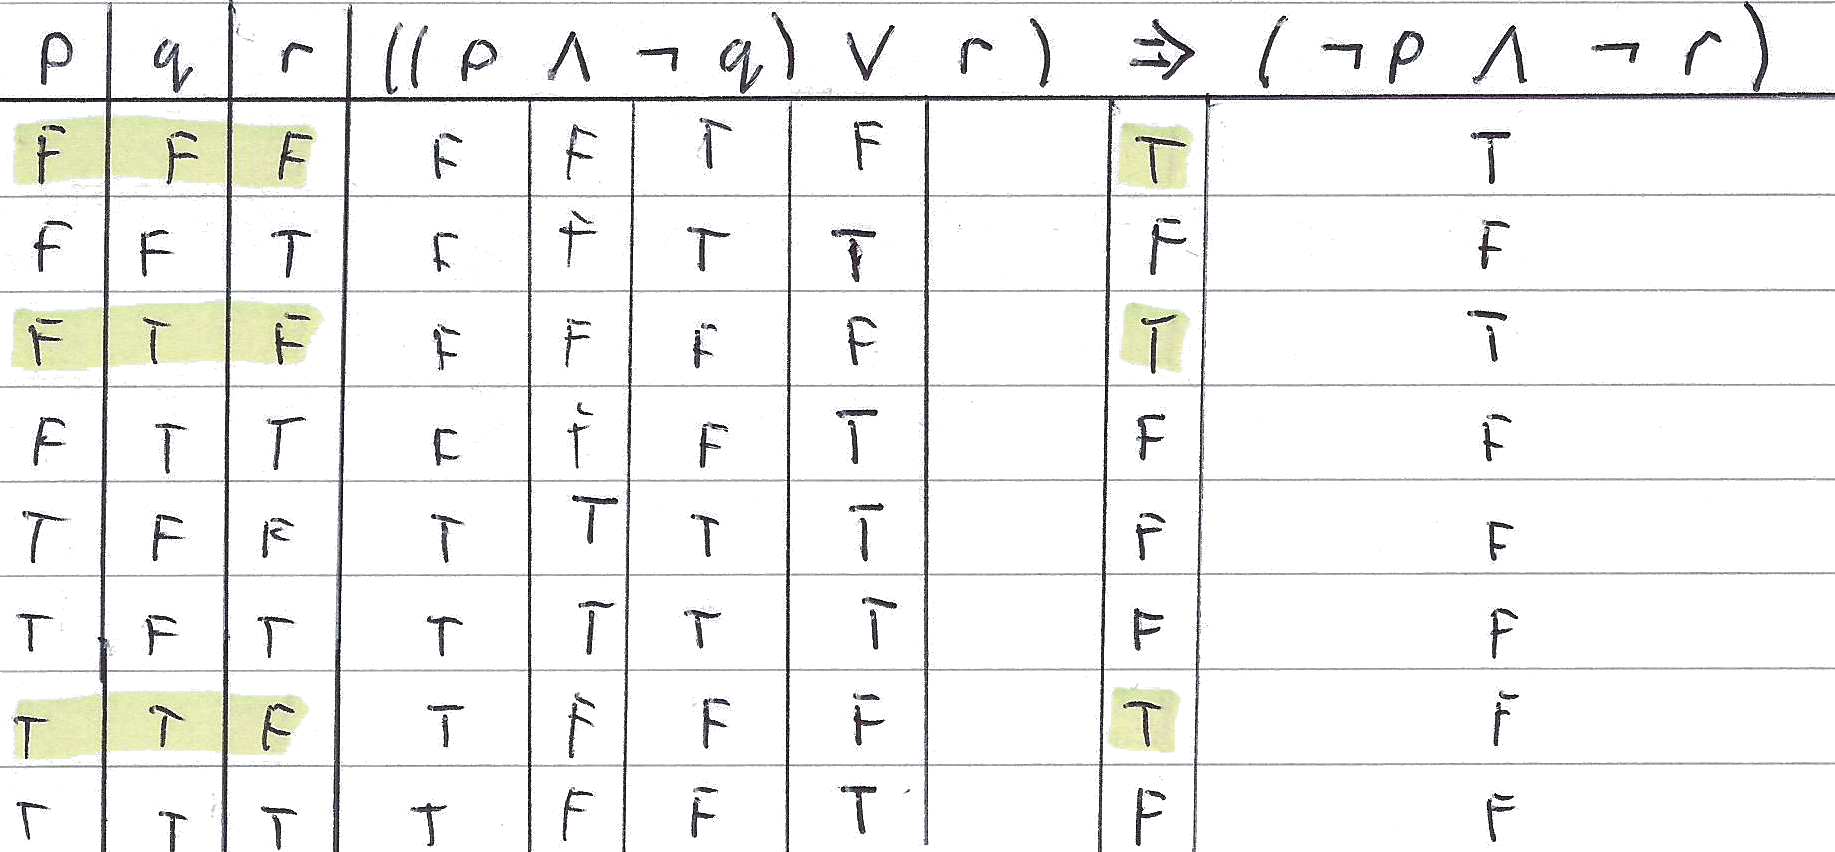 p q r ((p ∧ ¬ q) ∨ r) ⇒ (¬p ∧ ¬ r)
F F F F F T F T T
F F T F F T T F F
F T F F F F F T T
F T T F F F T F F
T F F T T T T F F
T F T T T T T F F
T T F T F F F T F
T T T T F F T F F